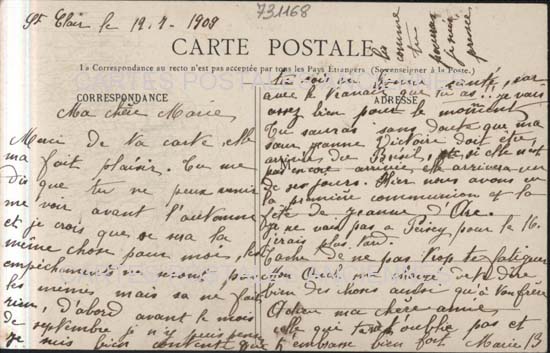 St Clair le 12-7-1909
731168
la comme tu pourras
CARTE POSTALE
La Correspondance au recto n'est pas acceptée par tous les Pays Étrangers (Se renseigner à la Poste.)
CORRESPONDANCE
Ma chère Marie
Merci de ta carte elle
ma fait plaisir. Tu me
dis que tu ne peux venir
me voir avant l'automne
et je crois que se sera la
même chose pour moi, les
empêchements ne seront pas
les mêmes mais sa ne fait
rien, d'abord avant le mois
de septembre je n'y puis penser
je suis bien contente que
ADRESSE
tu sois en bonne santé, car
avec le travail que tu as je vais
assez bien pour le moment
Tu sauras sans doute que ma
sœur Jeanne Victoire doit être
arrivée du Brésil, si elle n'est
pas encore arrivée elle arrivera un
de ses jours. Hier nous avons eu
la première communion et la
fête de Jeanne d'Arc.
Je ne vais pas à Peisey pour le 16.
j'irais plus tard.
Tache de ne pas trop te fatiguer
mon Oncle me charge de te dire
bien des choses aussi qu'à ton frère
Adieu ma chère amie
celle qui ne t'oublie pas et
t'embrasse bien fort Marie B